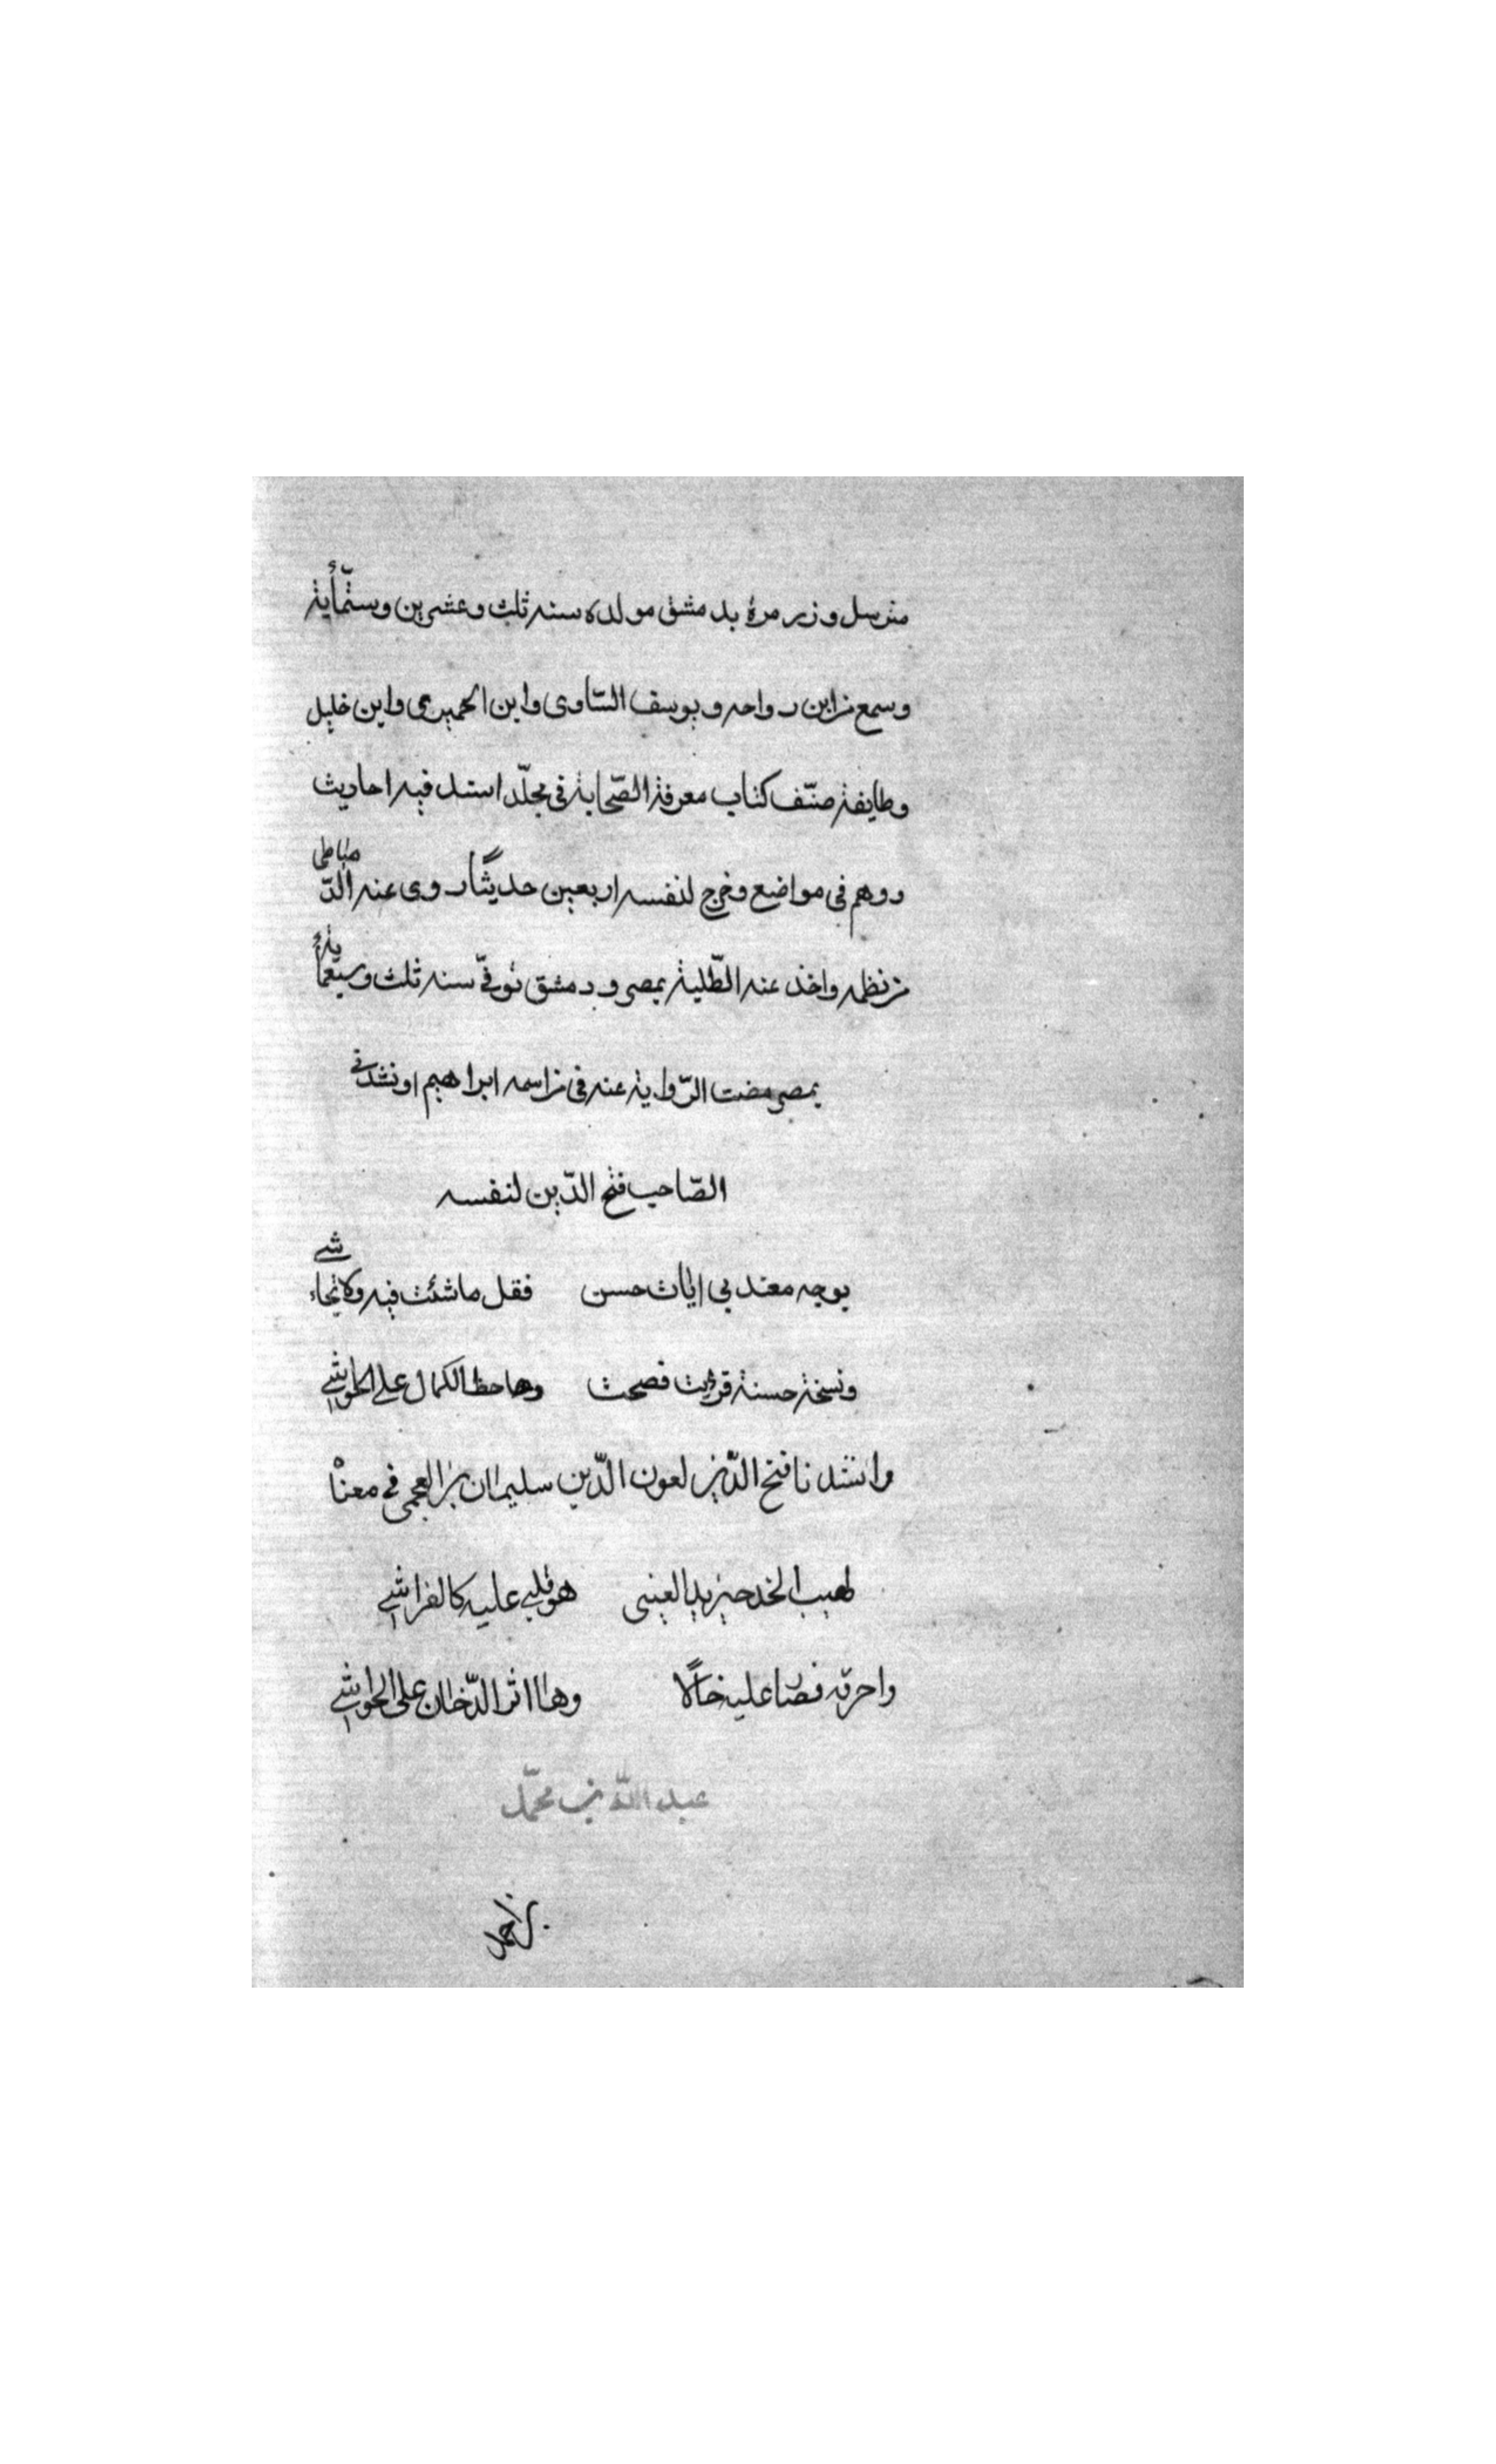 مترسل وزير مرة بدمشق مولده سنه ثلث وعشرين وستمأية
وسمع من ابن رواحه ويوسف الساوى وابن الحميرى وابن خليل
وطايفة صنّف كتاب معرفة الصّحابة فى مجلّد اسند فيه احاديث
ووهم فى مواضع وخرج لنفسه اربعين حديثًا روى عنه الدّمياطى
من نظمه واخذ عنه الطّلبة بمصر ودمشق توفّى سنه ثلث وسبعمأية
بمصر مضت الرّواية عنه فى من اسمه ابراهيم اونشدنى
الصّاحب فتح الدّين لنفسه
بوجه معذبى ايات حسن فقل ماشئت فيه ولاتحاشے
ونسخة حسنة قرئت فصحت وها حظ الكمال علے الحواشے
وانشدنا فتح الدّين لعون الدّين سليمان بن العجمى فى معناه
لهيب الخد حين بدا لعينى هو قلبے عليه كالفراشے
واحرقه فصار عليه خالًا وها اثر الدّخان على الحواشے
عبد اللّه بن محمّد
بن احمد